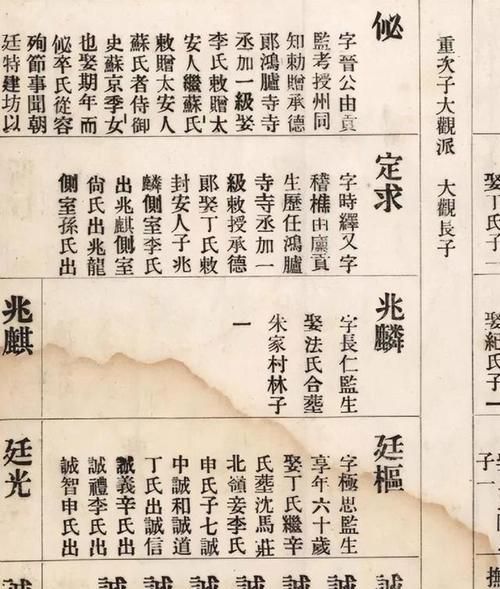 娶丁氏子二
娶紀氏子一
子一
撫
重次子大觀派 大觀長子
佖
字晉公由貢
監考授州同
知勅贈承德
郞鴻臚寺寺
丞加一級娶
李氏敕贈太
安人繼蘇氏
敕贈太安人
蘇氏者侍御
史蘇京季女
也娶期年而
佖卒氏從容
殉節事聞朝
廷特建坊以
定求
字時繹又字
稽樵由廩貢
生歷任鴻臚
寺寺丞加一
級敕授承德
郞娶丁氏敕
封安人子兆
麟側室李氏
出兆麒側室
尙氏出兆龍
側室孫氏出
兆麟
字長仁監生
娶法氏合葬
朱家村林子
一
兆麒
廷樞
字極思監生
享年六十歲
娶丁氏繼辛
氏葬沈馬莊
北領妾李氏
申氏子七誠
中誠和誠道
丁氏出誠信
誠義辛氏出
誠禮李氏出
誠智申氏出
廷光
誠
誠
誠
誠
誠
誠
誠
誠